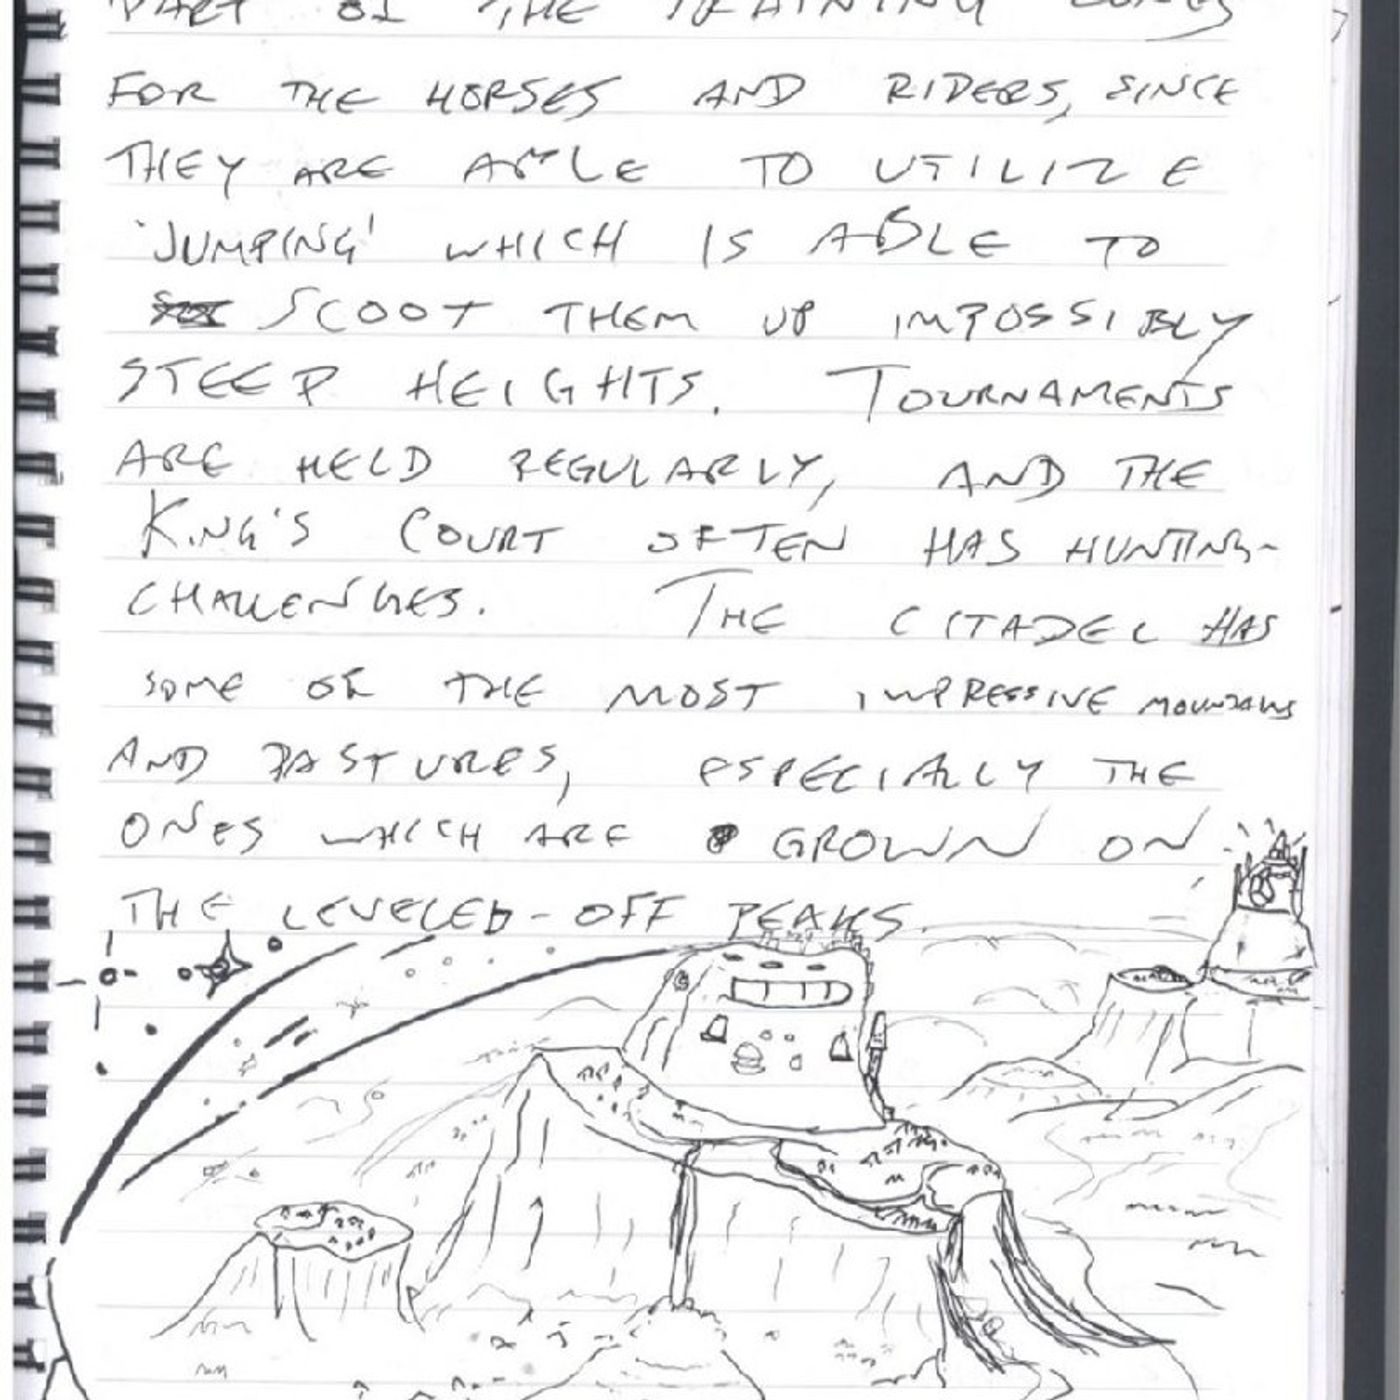 PART OF THE TRAINING COMES
FOR THE HORSES AND RIDERS, SINCE
THEY ARE ABLE TO UTILIZE
'JUMPING' WHICH IS ABLE TO
SCOOT THEM UP IMPOSSIBLY
STEEP HEIGHTS. TOURNAMENTS
ARE HELD REGULARLY, AND THE
KING'S COURT OFTEN HAS HUNTING-
CHALLENGES. THE CITADEL HAS
SOME OF THE MOST IMPRESSIVE MOUNTAINS
AND PASTURES, ESPECIALLY THE
ONES WHICH ARE GROWN ON
THE LEVELED-OFF PEAKS.